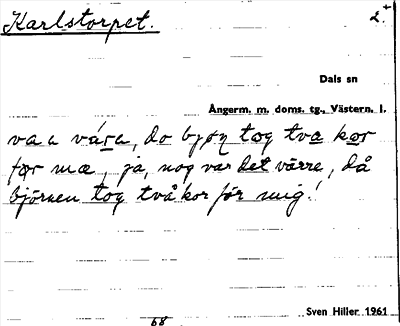 Karlstorpet.
2.+
Dals sn
Ångerm. m. doms. tg., Västern. l.
va a vára, do bjøŋ tog tva kor
før mæ, ja, nog var det värre, då
björnen tog två kor för mig!
Sven Hiller 1961
68